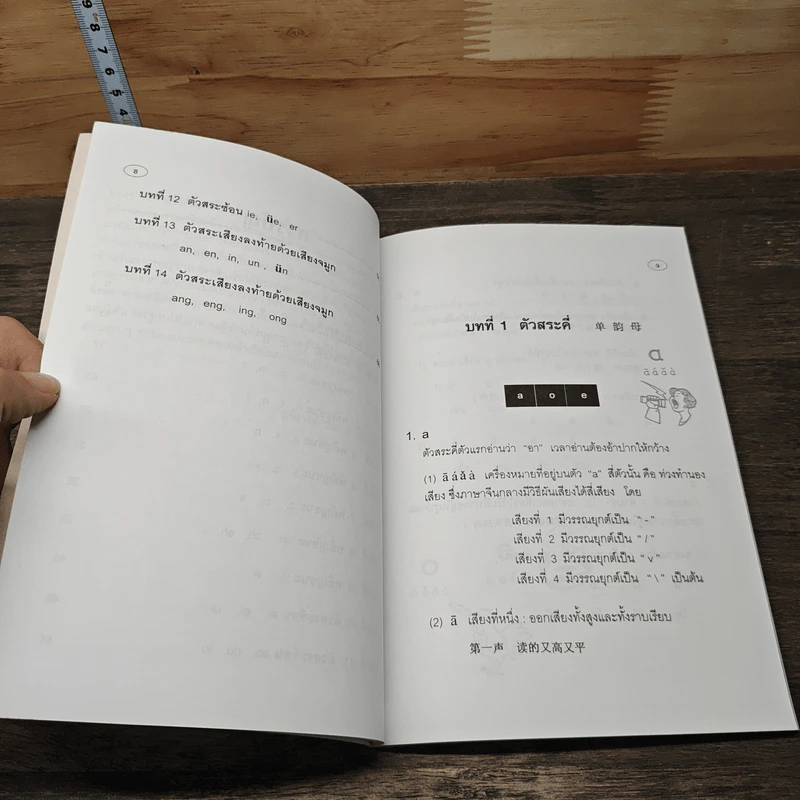 9
8
7
6
5
4
8
บทที่ 12 ตัวสระซ้อน ie, üe, er
บทที่ 13 ตัวสระเสียงลงท้ายด้วยเสียงจมูก
an, en, in, un , ün
บทที่ 14 ตัวสระเสียงลงท้ายด้วยเสียงจมูก
ang, eng, ing, ong
9
บทที่ 1 ตัวสระคี่ 单 韵 母
ɑ
ā á ǎ à
a o e
1. a
ตัวสระคี่ตัวแรกอ่านว่า "อา" เวลาอ่านต้องอ้าปากให้กว้าง
(1) ā á ǎ à เครื่องหมายที่อยู่บนตัว "a" สี่ตัวนั้น คือ ท่วงทำนอง
เสียง ซึ่งภาษาจีนกลางมีวิธีผันเสียงได้สี่เสียง โดย
เสียงที่ 1 มีวรรณยุกต์เป็น " - "
เสียงที่ 2 มีวรรณยุกต์เป็น " / "
เสียงที่ 3 มีวรรณยุกต์เป็น " v "
เสียงที่ 4 มีวรรณยุกต์เป็น " \ " เป็นต้น
(2) ā เสียงที่หนึ่ง : ออกเสียงทั้งสูงและทั้งราบเรียบ
第一声 读的又高又平